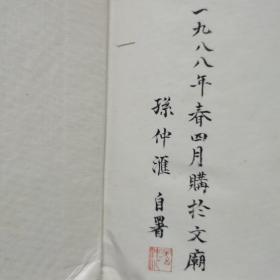 一九八八年春四月購於文廟
孫仲滙自署